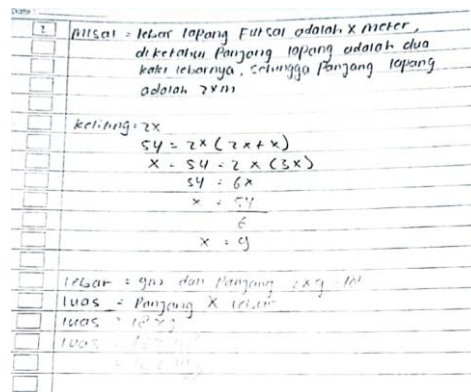 Date :
2 Misal = lebar lapang Futsal adalah x meter,
diketahui Panjang lapang adalah dua
kali lebarnya, sehingga Panjang lapang
adalah 2xm
keliling = 2x
54 = 2x (2x + x)
x = 54 = 2 x (3x)
54 = 6x
x = 54
6
x = 9
lebar = 9m dan Panjang 2x9 = 18
luas = Panjang x lebar
luas = 18 x 9
luas